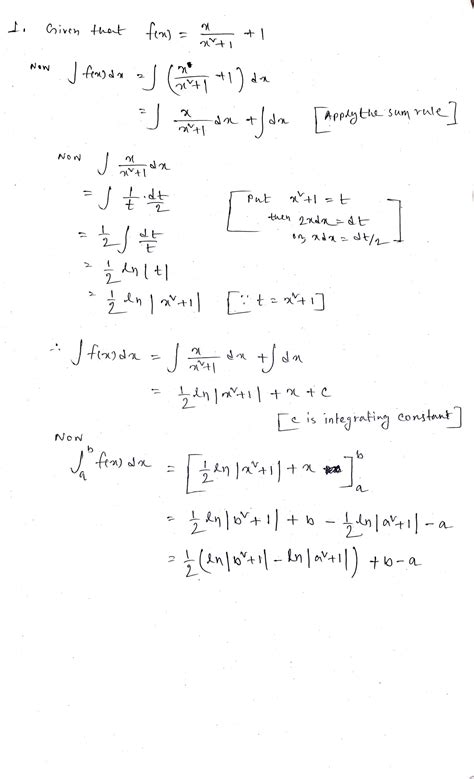 1. Given that f(x) = x/(x²+1) + 1
Now ∫f(x)dx = ∫(x/(x²+1) + 1) dx
= ∫ x/(x²+1) dx + ∫dx [Apply the sum rule]
Now ∫ x/(x²+1) dx
= ∫ 1/t · dt/2 [Put x²+1 = t
then 2xdx = dt
or, xdx = dt/2]
= 1/2 ∫ dt/t
= 1/2 ln|t|
= 1/2 ln|x²+1| [∵ t = x²+1]
∴ ∫f(x)dx = ∫ x/(x²+1) dx + ∫dx
= 1/2 ln|x²+1| + x + c
[c is integrating constant]
Now
∫ₐᵇ f(x)dx = [1/2 ln|x²+1| + x]ₐᵇ
= 1/2 ln|b²+1| + b - 1/2 ln|a²+1| - a
= 1/2 (ln|b²+1| - ln|a²+1|) + b-a